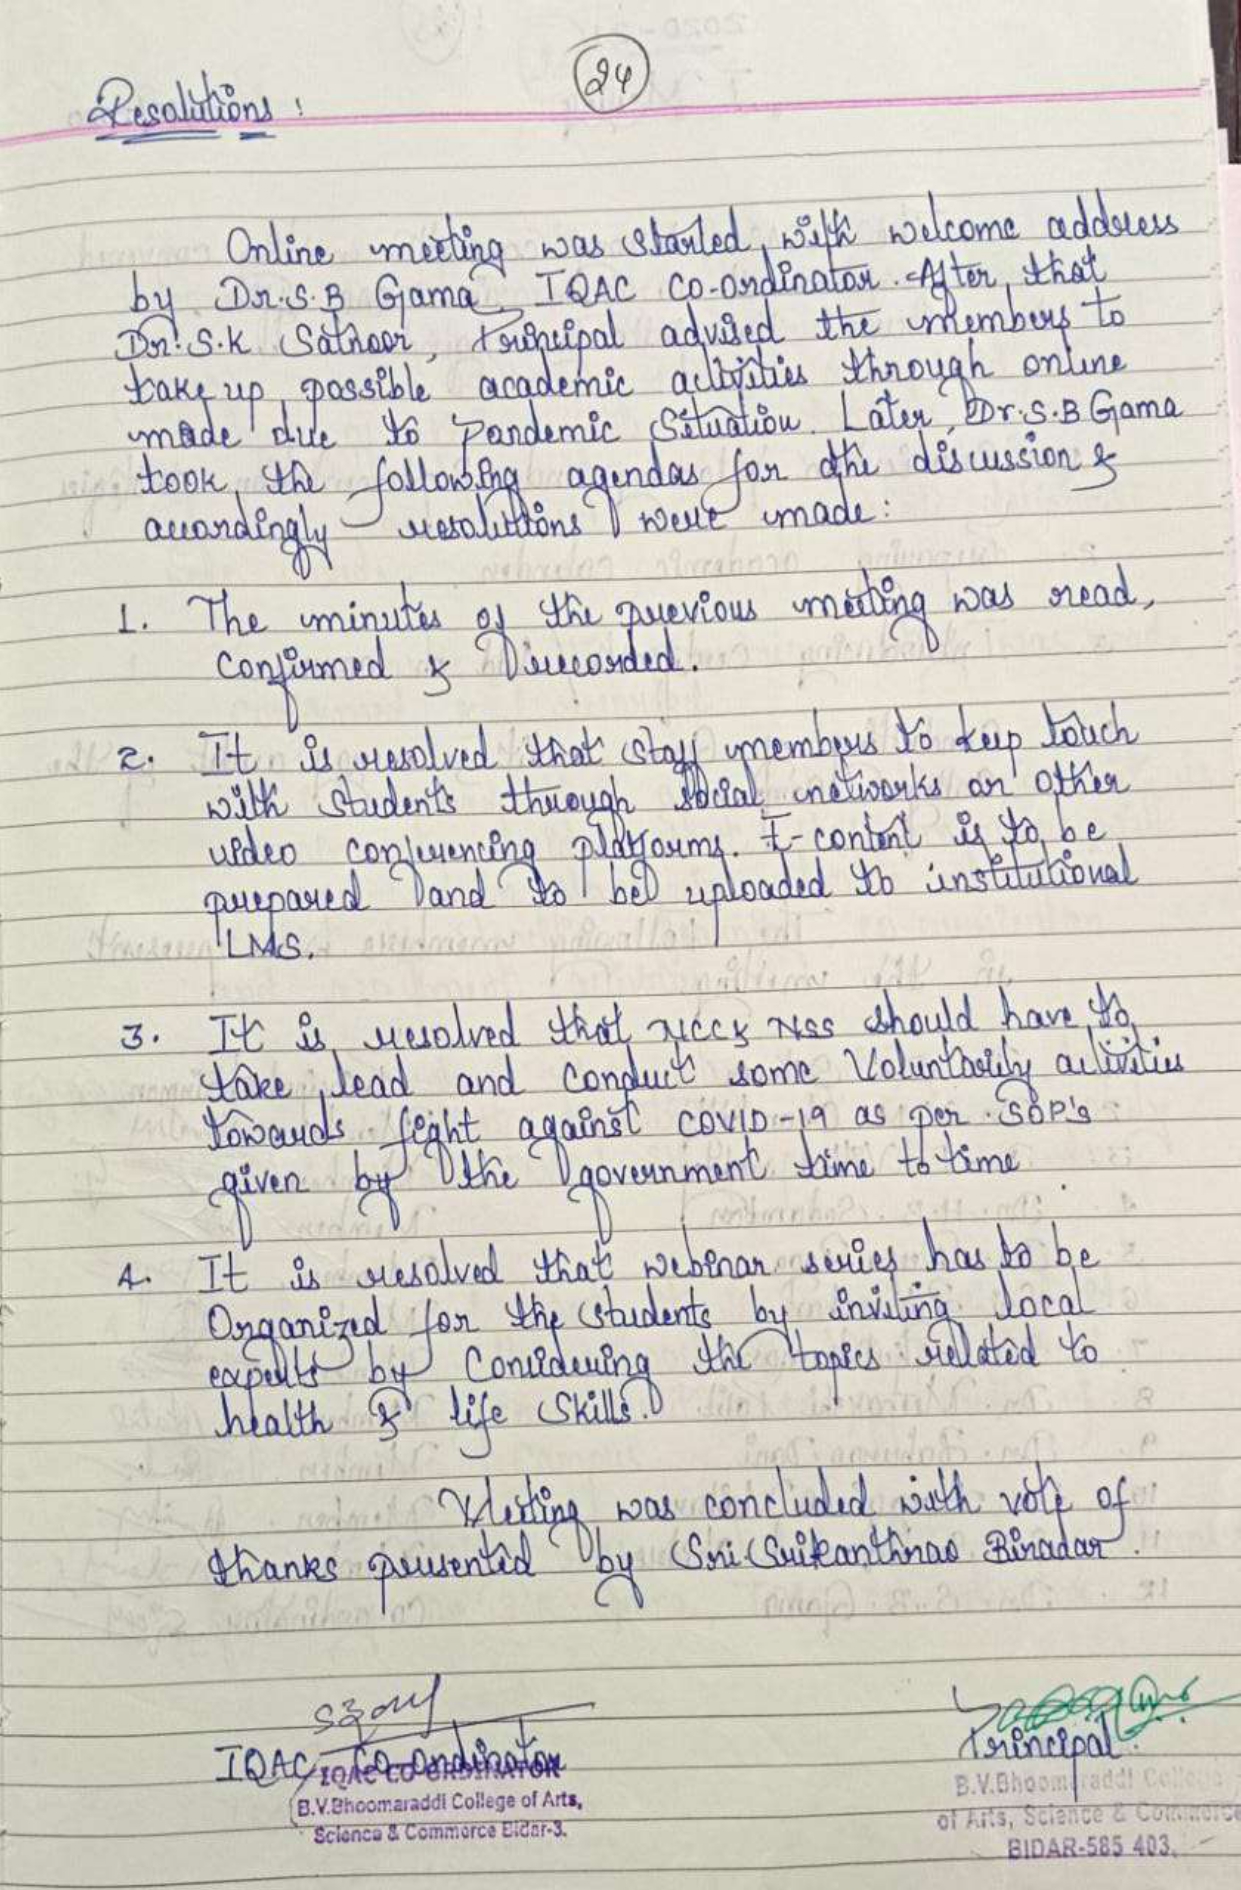 24
Resolutions:
Online meeting was started with welcome address
by Dr. S. B Gama, IQAC Co-ordinator. After that
Dr. S.K Satnoor, Principal advised the members to
take up possible academic activities through online
made due to Pandemic Situation. Later, Dr. S. B Gama
took the following agendas for the discussion &
accordingly resolutions were made:
1. The minutes of the previous meeting was read,
confirmed & recorded.
2. It is resolved that staff members to keep touch
with students through social networks or other
video conferencing platforms. E-content is to be
prepared and to be uploaded to institutional
LMS.
3. It is resolved that NCC & NSS should have to
take lead and conduct some Voluntarily activities
towards fight against COVID-19 as per SOP's
given by the government time to time
4. It is resolved that webinar series has to be
Organized for the students by inviting local
experts by Considering the topics related to
health & life Skills.
Meeting was concluded with vote of
thanks presented by Sri. Srikanthrao Biradar.
IQAC Co-ordinator
IQAC CO-ORDINATOR
B.V.Bhoomaraddi College of Arts,
Science & Commerce Bidar-3.
Principal
B.V.Bhoomaraddi College
of Arts, Science & Commerce
BIDAR-585 403.